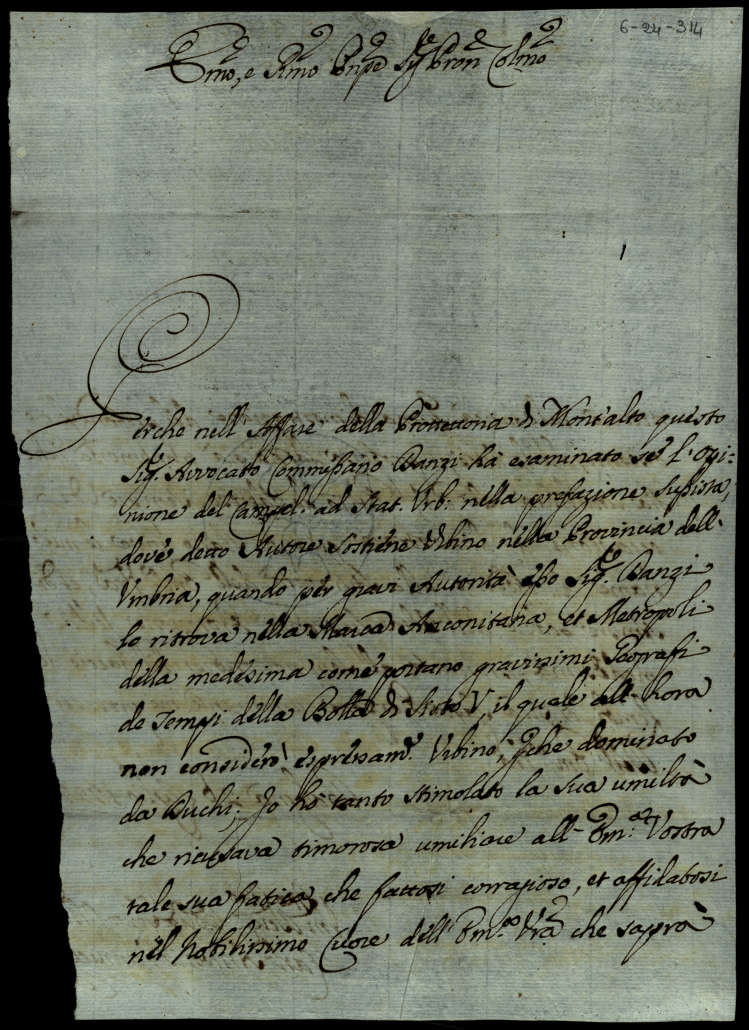 6-24-314
Emo, e Rmo Pnpe Sig.re Pron Colmo
Perche nell'Affare della Protettoria di Mont'alto questo
Sig.r Avvocato Commissario Danzi hà esaminato se l'opi=
nione del Campel. ad Stat. Urb. nella prefazione sussista,
dove detto Autore sostiene Urbino nella Provincia dell'
Umbria, quando per gravi Autorità esso Sig.re Danzi
lo ritrova nella Marca Anconitana, et Metropoli
della medesima come portano gravissimi Geografi
de Tempi della Bolla di Sisto V, il quale all'hora
non considerò espressam.e Urbino, perche dominato
da Duchi; Io hò tanto stimolato la sua umiltà
che ricusava timorosa umiliare all'Em.a Vostra
tale sua fatica, che fattosi corragioso, et affidatosi
nel Nobilissimo Cuore dell'Em.a Vra che saprà